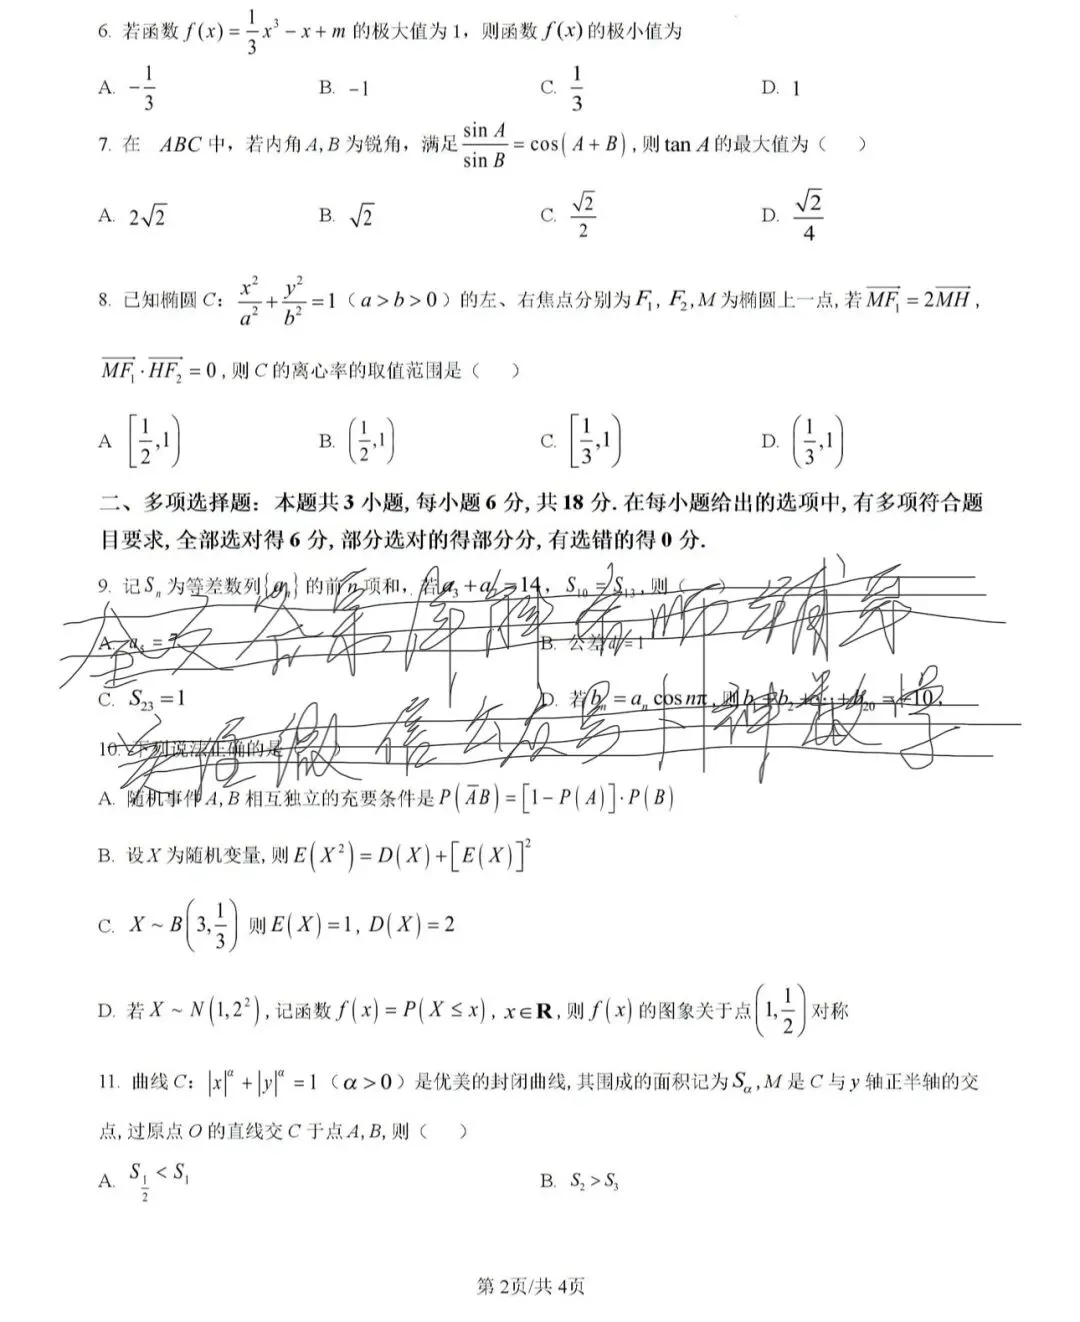 6. 若函数 f(x) = 1/3 x³ − x + m 的极大值为 1，则函数 f(x) 的极小值为
A. −1/3 B. −1 C. 1/3 D. 1
7. 在 ABC 中，若内角 A, B 为锐角，满足 sin A / sin B = cos(A + B), 则 tan A 的最大值为（ ）
A. 2√2 B. √2 C. √2/2 D. √2/4
8. 已知椭圆 C： x²/a² + y²/b² = 1（a > b > 0）的左、右焦点分别为 F₁, F₂, M 为椭圆上一点, 若 MF₁ = 2MH，
MF₁ · HF₂ = 0, 则 C 的离心率的取值范围是（ ）
A [1/2, 1) B. (1/2, 1) C. [1/3, 1) D. (1/3, 1)
二、多项选择题：本题共 3 小题, 每小题 6 分, 共 18 分. 在每小题给出的选项中, 有多项符合题
目要求, 全部选对得 6 分, 部分选对的得部分分, 有选错的得 0 分.
9. 记 Sₙ 为等差数列{aₙ} 的前 n 项和，若 a₃ + a = 14，S₁₀ = S₁₃, 则（ ）
A. a = 7 B. 公差 d = 1
C. S₂₃ = 1 D. 若 bₙ = aₙ cos nπ，则 b + b₂ + ⋯ + b₂₀ = −10,
10. 下列说法正确的是
A. 随机事件 A, B 相互独立的充要条件是 P(A̅B) = [1 − P(A)] · P(B)
B. 设 X 为随机变量, 则 E(X²) = D(X) + [E(X)]²
C. X ~ B(3, 1/3) 则 E(X) = 1, D(X) = 2
D. 若 X ~ N(1, 2²), 记函数 f(x) = P(X ≤ x), x∈R, 则 f(x) 的图象关于点 (1, 1/2) 对称
11. 曲线 C： |x|^α + |y|^α = 1（α > 0）是优美的封闭曲线, 其围成的面积记为 S_α, M 是 C 与 y 轴正半轴的交
点, 过原点 O 的直线交 C 于点 A, B, 则（ ）
A. S_{1/2} < S₁ B. S₂ > S₃
第 2页/共 4页